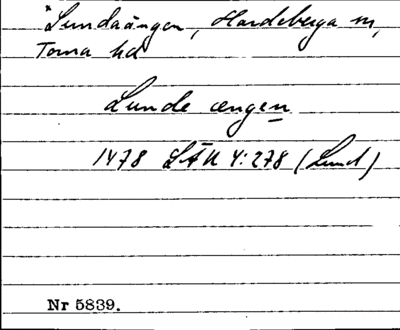 *Lundaängen, Hardeberga sn,
Torna hd
Lunde œngen
1478 LÄU 4:278 (Lund)
Nr 5839.